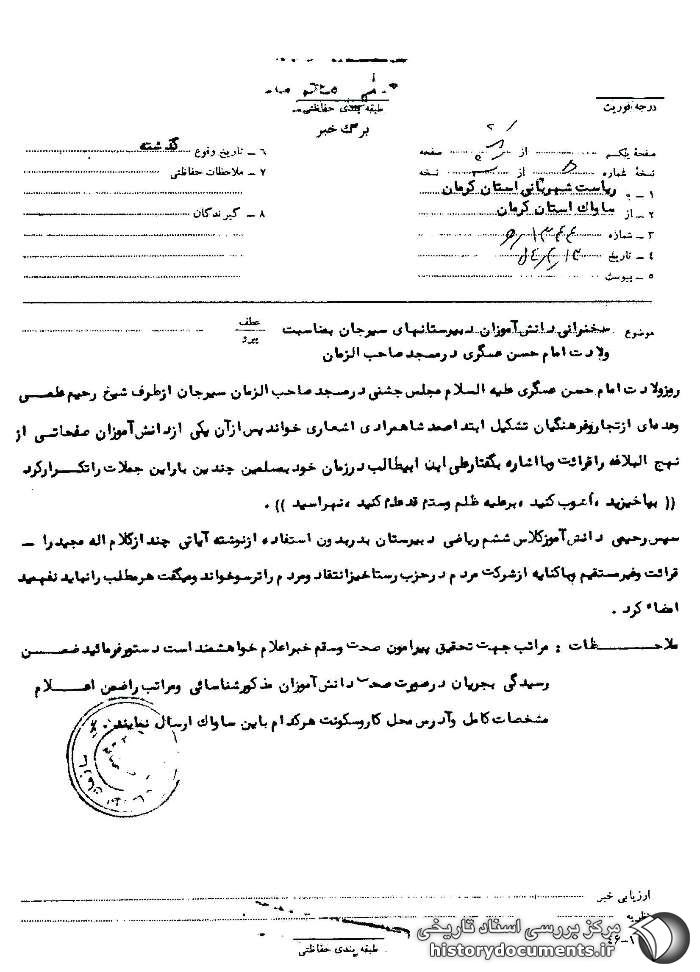 طبقه بندی حفاظتی
برگ خبر
درجه فوریت
صفحه یکم از صفحه
نسخه شماره ۵ از نسخه
۱ ـ به ریاست شهربانی استان کرمان
۲ ـ از ساواك استان کرمان
۳ ـ شماره
۴ ـ تاریخ
۵ ـ پیوست
۶ ـ تاریخ وقوع گذشته
۷ ـ ملاحظات حفاظتی
۸ ـ گیرندگان
موضوع سخنرانی دانش آموزان دبیرستانهای سیرجان بمناسبت
عطف
پیرو
ولادت امام حسن عسگری در مسجد صاحب الزمان
روز ولادت امام حسن عسگری علیه السلام مجلس جشنی در مسجد صاحب الزمان سیرجان از طرف شیخ رحیم
وعده ای از تجار و فرهنگیان تشکیل ابتدا صمد شاهمرادی اشعاری خواند پس از آن یکی از دانش آموزان صفحاتی از
نهج البلاغه را قرائت و با اشاره بگفتار علی این ابیطالب در زمان خود بمسلمین چندین بار این جملات را تکرار کرد
(( بپاخیزید ، آشوب کنید ، بر علیه ظلم و ستم قد علم کنید ، نهراسید )) .
سپس رحیمی دانش آموز کلاس ششم ریاضی دبیرستان بدر بدون استفاده از نوشته آیاتی چند از کلام اله مجید را ـ
قرائت و غیر مستقیم و با کنایه از شرکت مردم در حزب رستاخیز انتقاد و مردم را ترسو خواند و میگفت هر مطلب را نباید نفهمید
امضاء کرد .
ملاحـــظات : مراتب جهت تحقیق پیرامون صحت و سقم خبر اعلام خواهشمند است دستور فرمائید ضمـــن
رسیدگی بجریان در صورت صحت دانش آموزان مذکور شناسائی و مراتب را ضمن اعـــلام
مشخصات کامل و آدرس محل کار و سکونت هر کدام باین ساواك ارسال نمایند .
ارزیابی خبر
نظریه
طبقه بندی حفاظتی
مرکز بررسی اسناد تاریخی
historydocuments.ir